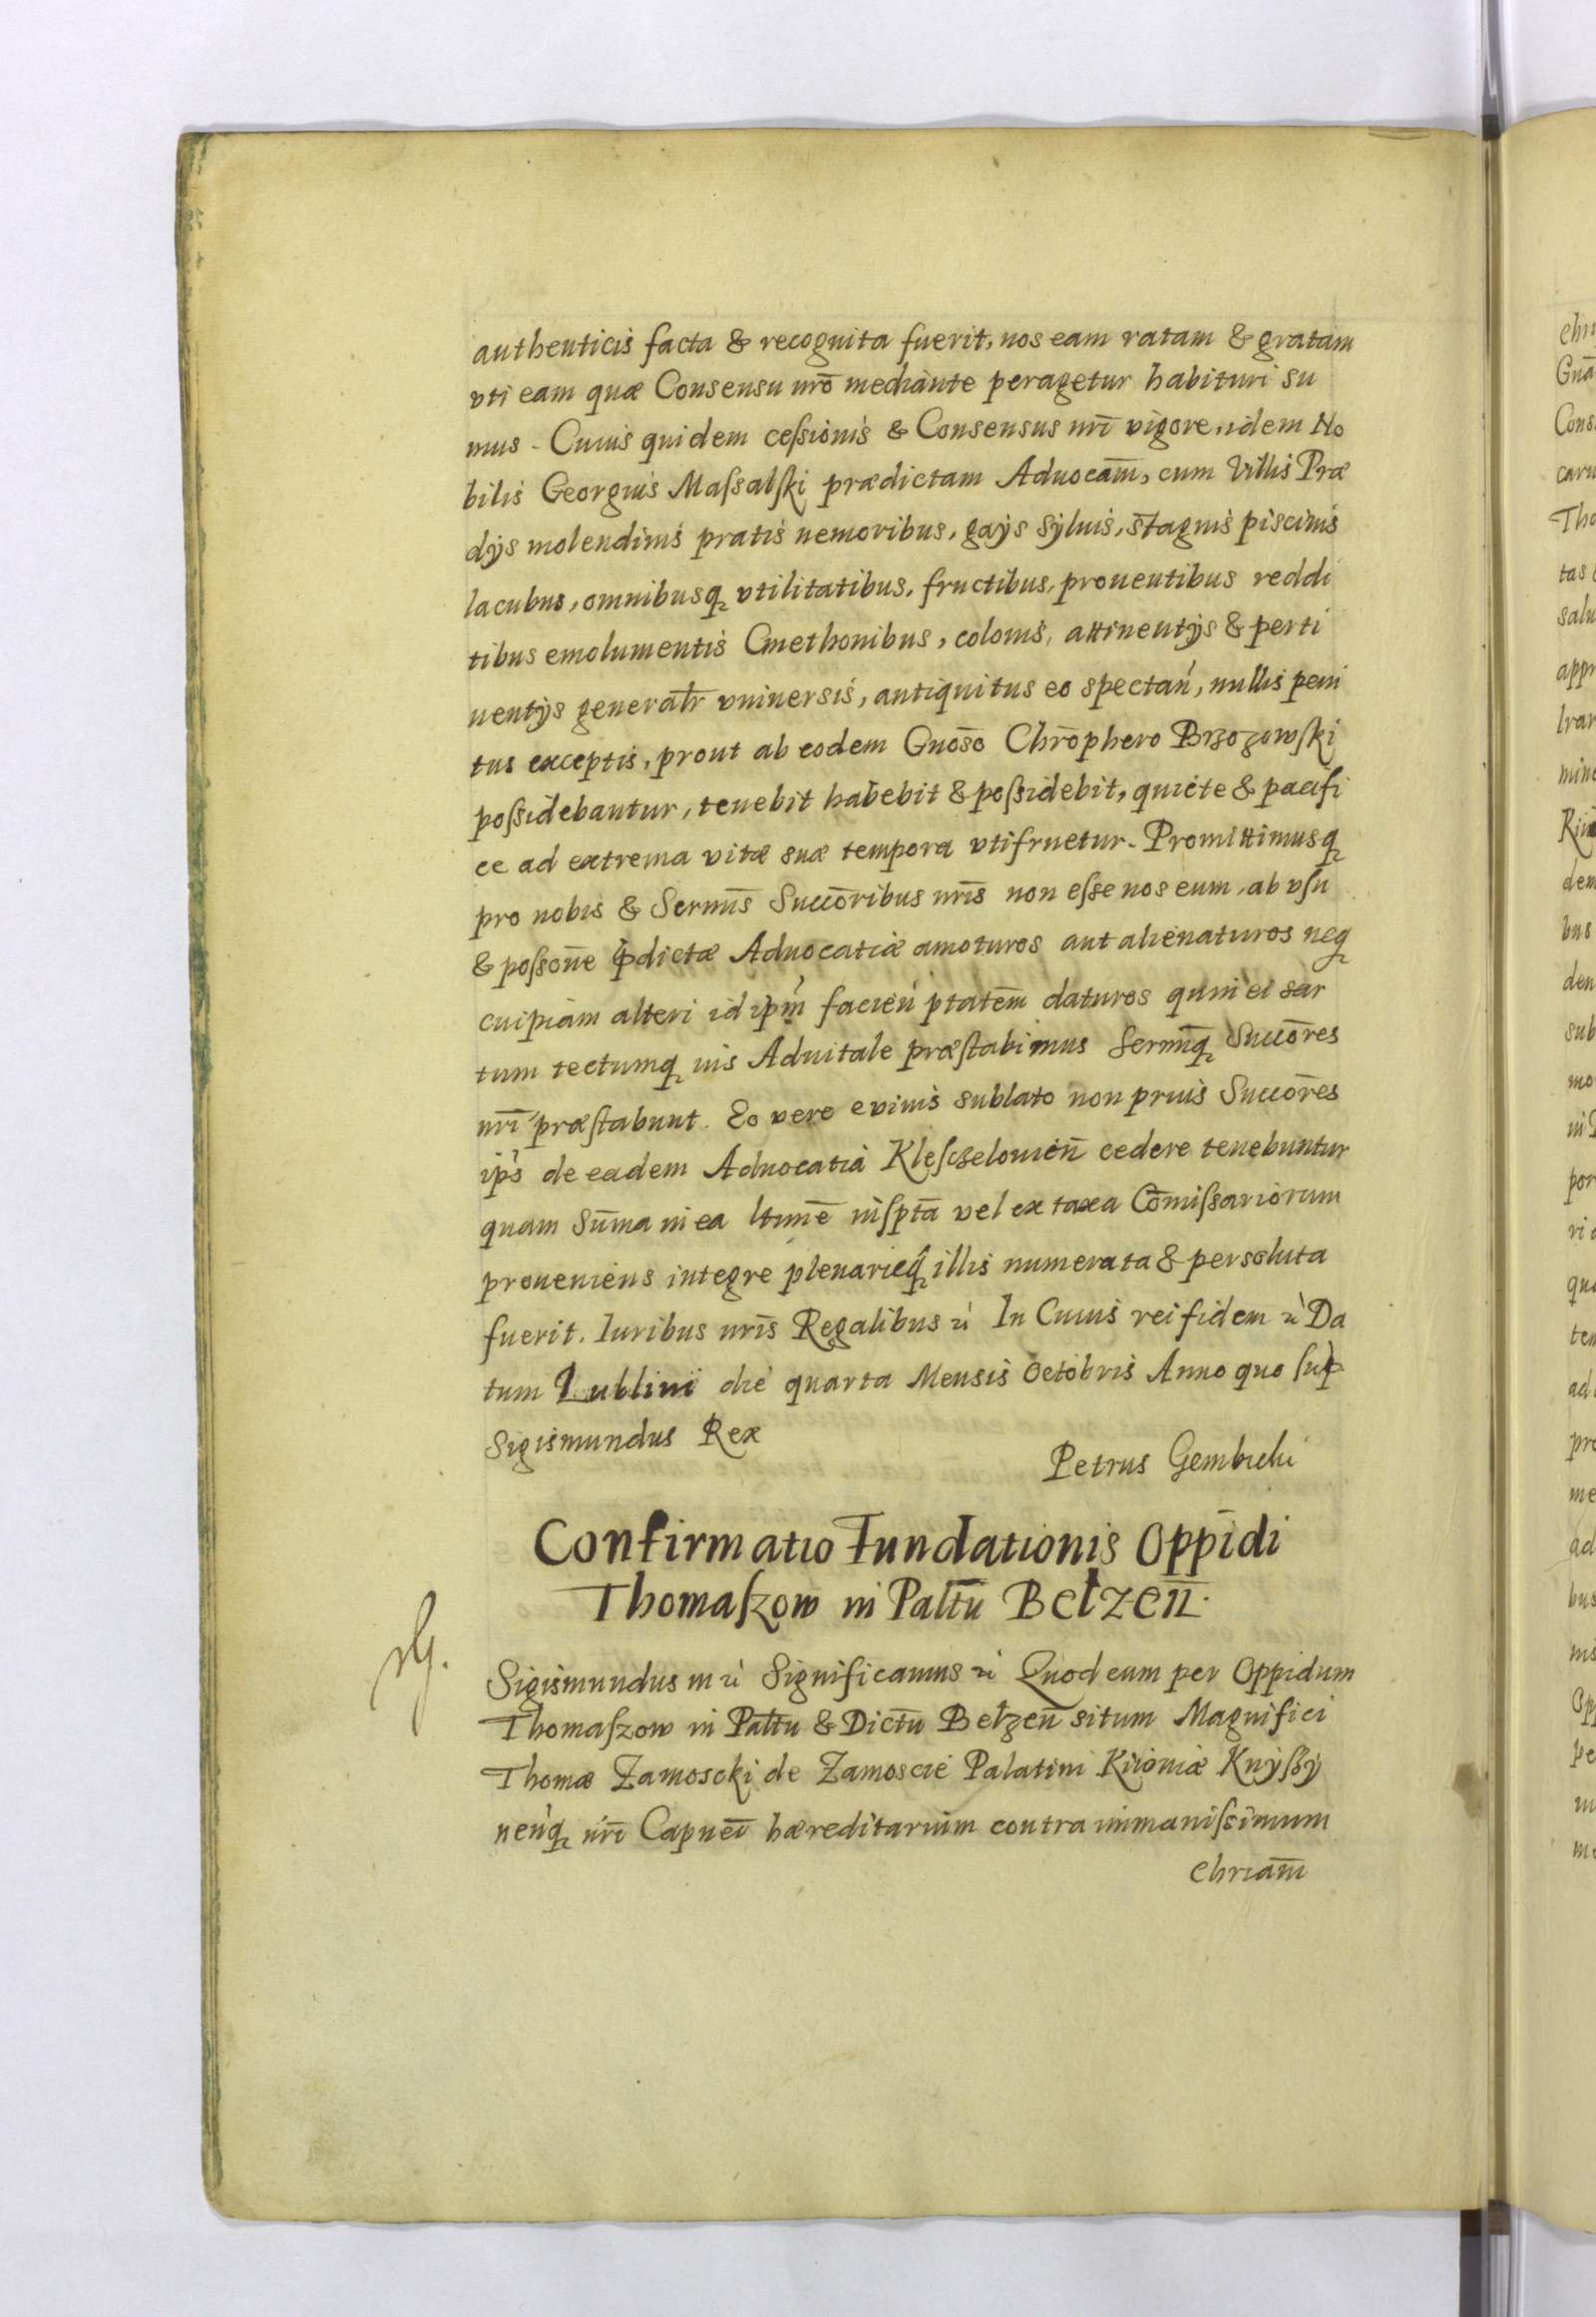 authenticis facta & recognita fuerit, nos eam ratam & gratam
vti eam quæ Consensu nrō mediante peragetur habituri su
mus. Cuius quidem cessionis & Consensus nrī vigore, idem No
bilis Georgius Massalski prædictam Aduocam̄, cum Villis Præ
dÿs molendinis pratis nemoribus, gaÿs syluis, stagnis piscinis
lacubus, omnibusq, vtilitatibus, fructibus, prouentibus reddi
tibus emolumentis Cmethonibus, colonis, attinentÿs & perti
nentÿs generalr̄ vniuersis, antiquitus eo spectan̄, nullis peni
tus exceptis, prout ab eodem Gnōso Chrōphero Brzozowski
possidebantur, tenebit habebit & possidebit, quiete & pacifi
ce ad extrema vitæ suæ tempora vtifruetur. Promittimusq,
pro nobis & Sermīs Succōribus nrīs non esse nos eum, ab vsu
& possōne p̄dictæ Aduocatiæ amoturos aut alienaturos neq,
cuipiam alteri id ipm̄ facien̄ ptatēm daturos quin ei sar
tum tectumq, ius Aduitale præstabimus Sermīq, Succōres
nrī præstabunt. Eo vero e viuis sublato non prius Succōres
ips̄ de eadem Aduocatia Kleszczelouien̄ cedere tenebuntur
quam sūma in ea ltimē inspta vel ex taxa Cōmissariorum
proueniens integre plenarieq, illis numerata & persoluta
fuerit. Iuribus nrīs Regalibus etc̄ In Cuius rei fidem etc̄ Da
tum Lublini die quarta Mensis Octobris Anno quo sup
Sigismundus Rex
Petrus Gembicki
Confirmatio Fundationis Oppidi
Thomaszow in Paltū Belzen̄.
Sigismundus III etc̄ Significamus etc̄ Quod cum per Oppidum
Thomaszow in Paltū & Dictū Belzen̄ situm Magnifici
Thomæ Zamoscki de Zamoscie Palatini Kiiouiæ Knÿszÿ
nen̄q, nrī Capneī hæreditarium contra immanissimum
chriam̄